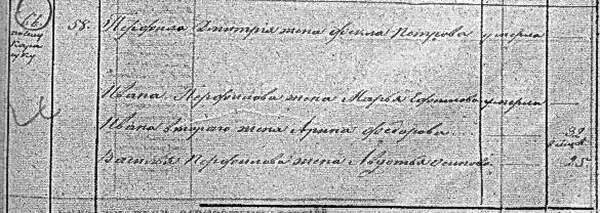 58. Перфила Дмитрія жена Фекла Петрова умерла
Ивана Перфилова жена Марья Ефимова умерла
Ивана втораго жена Арина Федорова 32
Василья Перфилова жена Авдотья Осипова 25